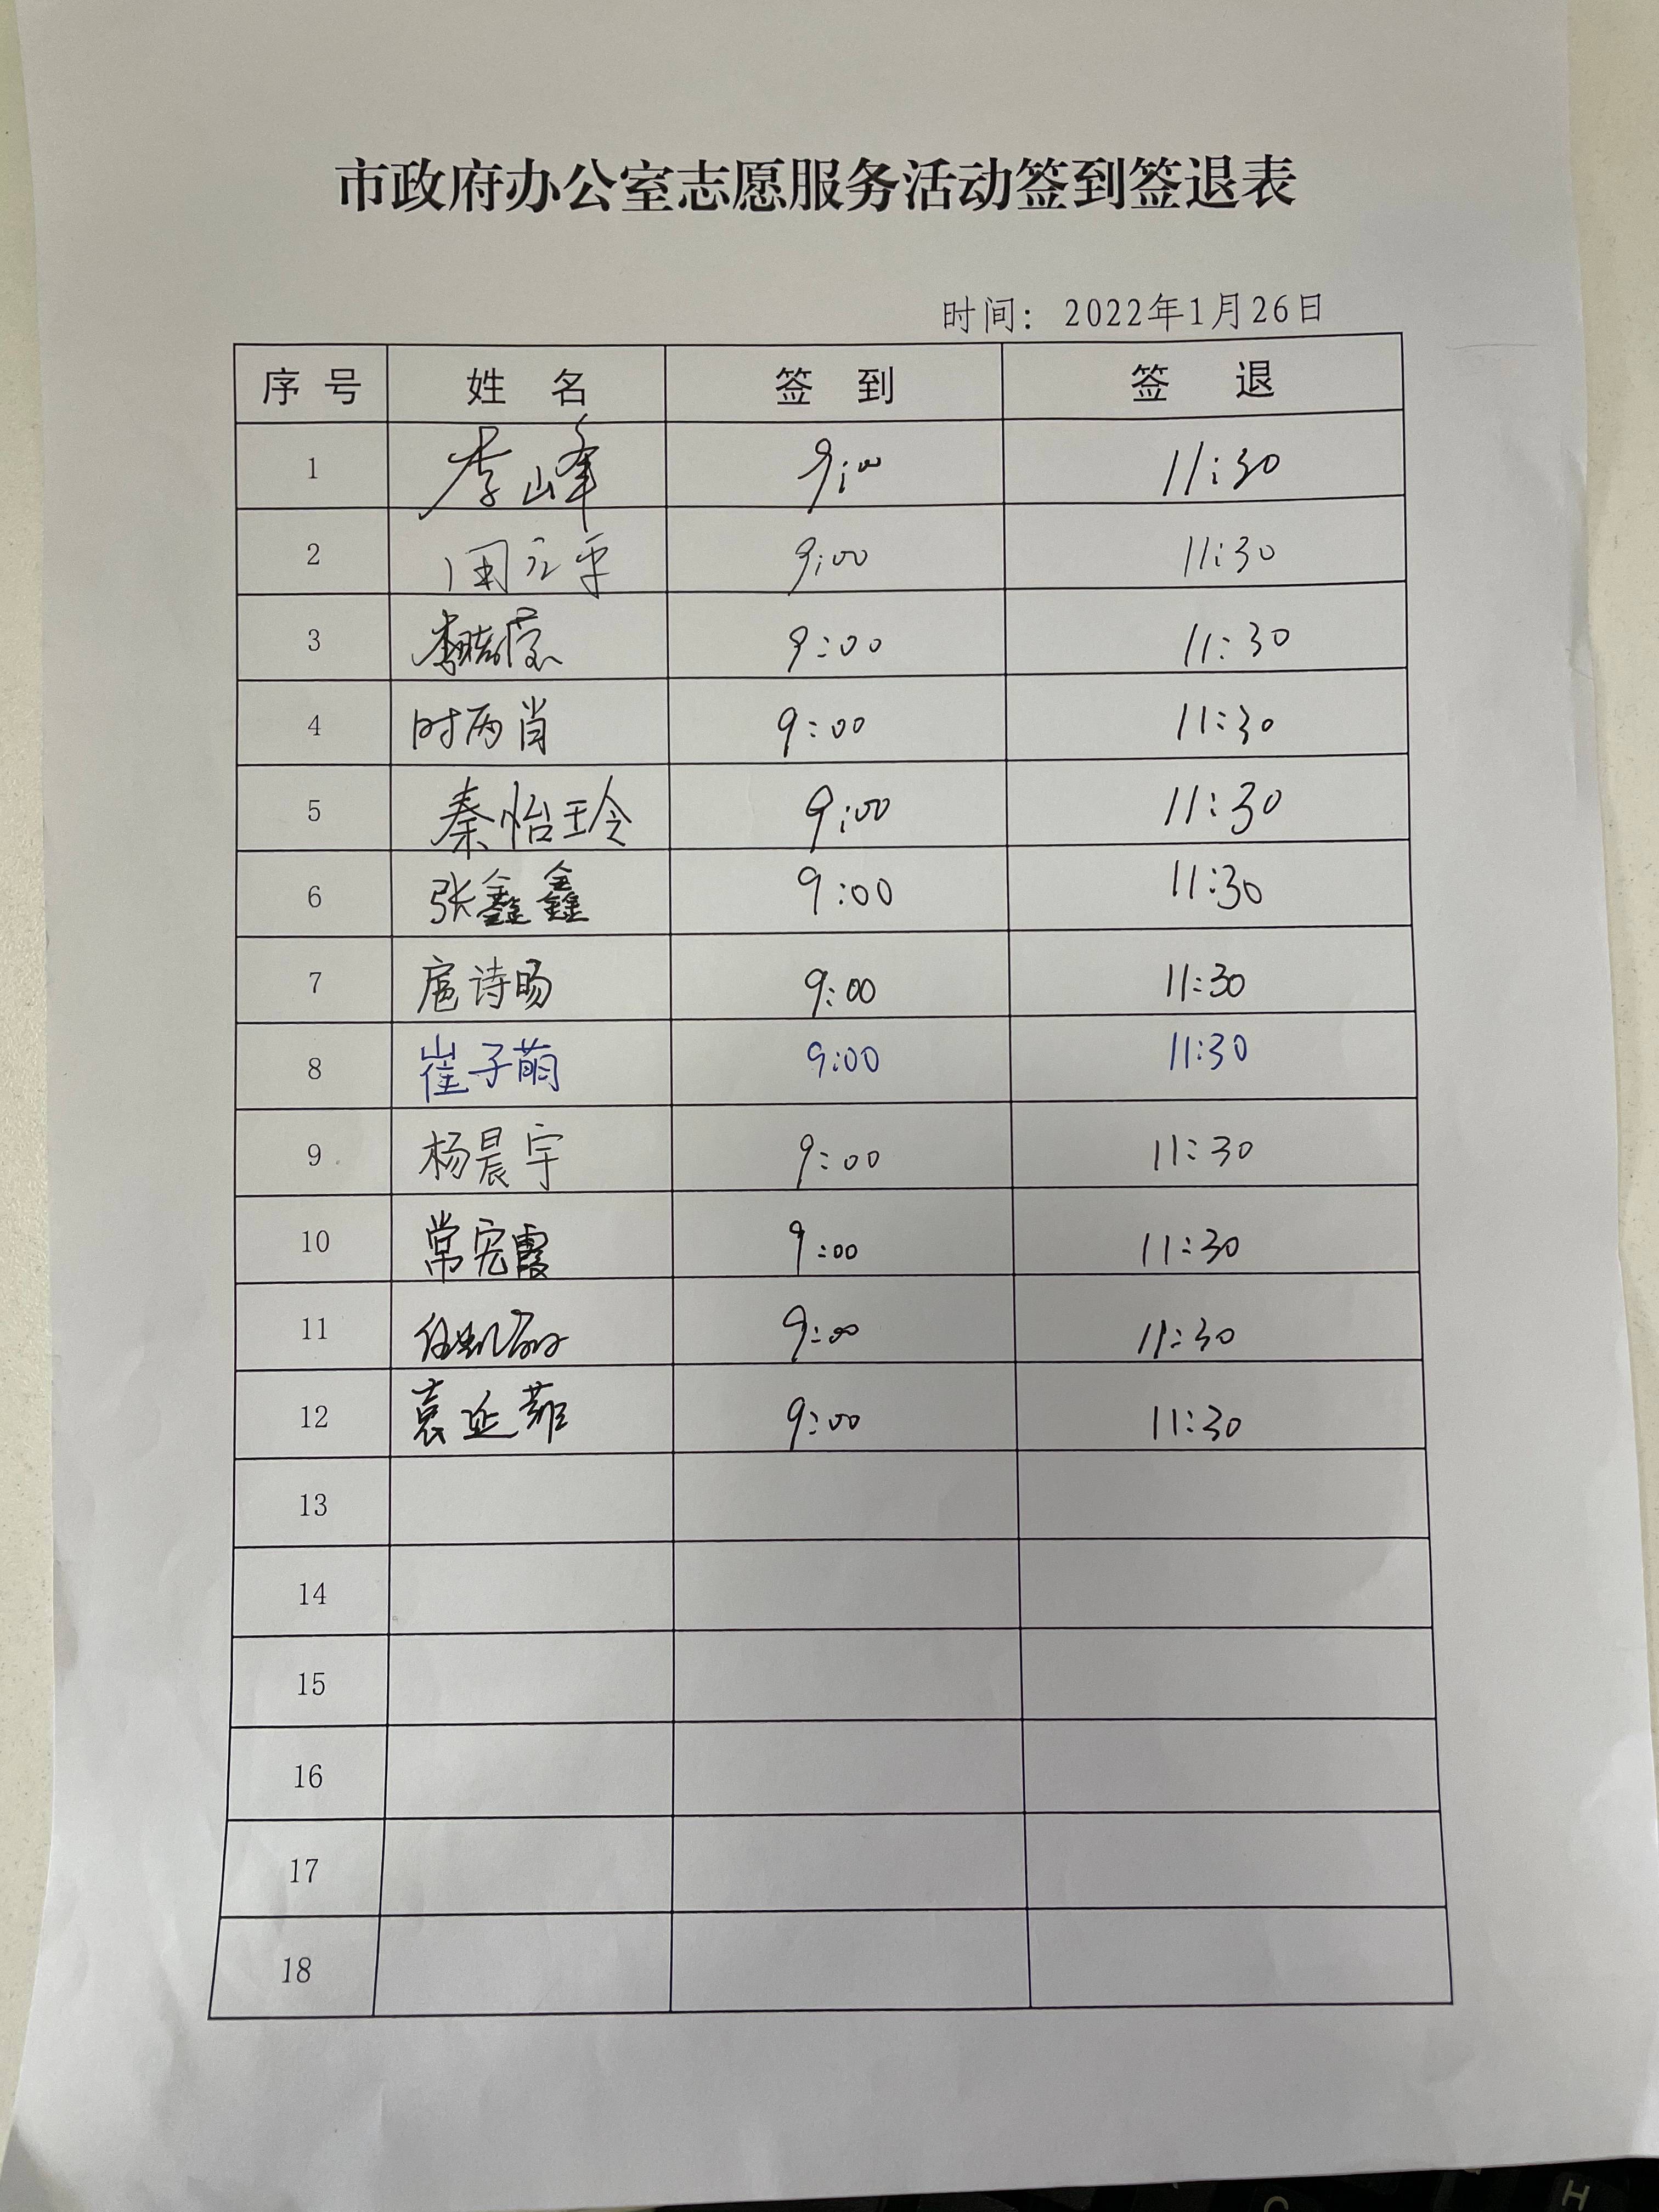 市政府办公室志愿服务活动签到签退表
时间：2022年1月26日
序号 姓名 签到 签退
1 李峰 9:00 11:30
2 9:00 11:30
3 9:00 11:30
4 时两肖 9:00 11:30
5 秦怡玲 9:00 11:30
6 张鑫鑫 9:00 11:30
7 扈诗旸 9:00 11:30
8 崔子萌 9:00 11:30
9 杨晨宇 9:00 11:30
10 常宪霞 9:00 11:30
11 9:00 11:30
12 袁延茹 9:00 11:30
13
14
15
16
17
18
H